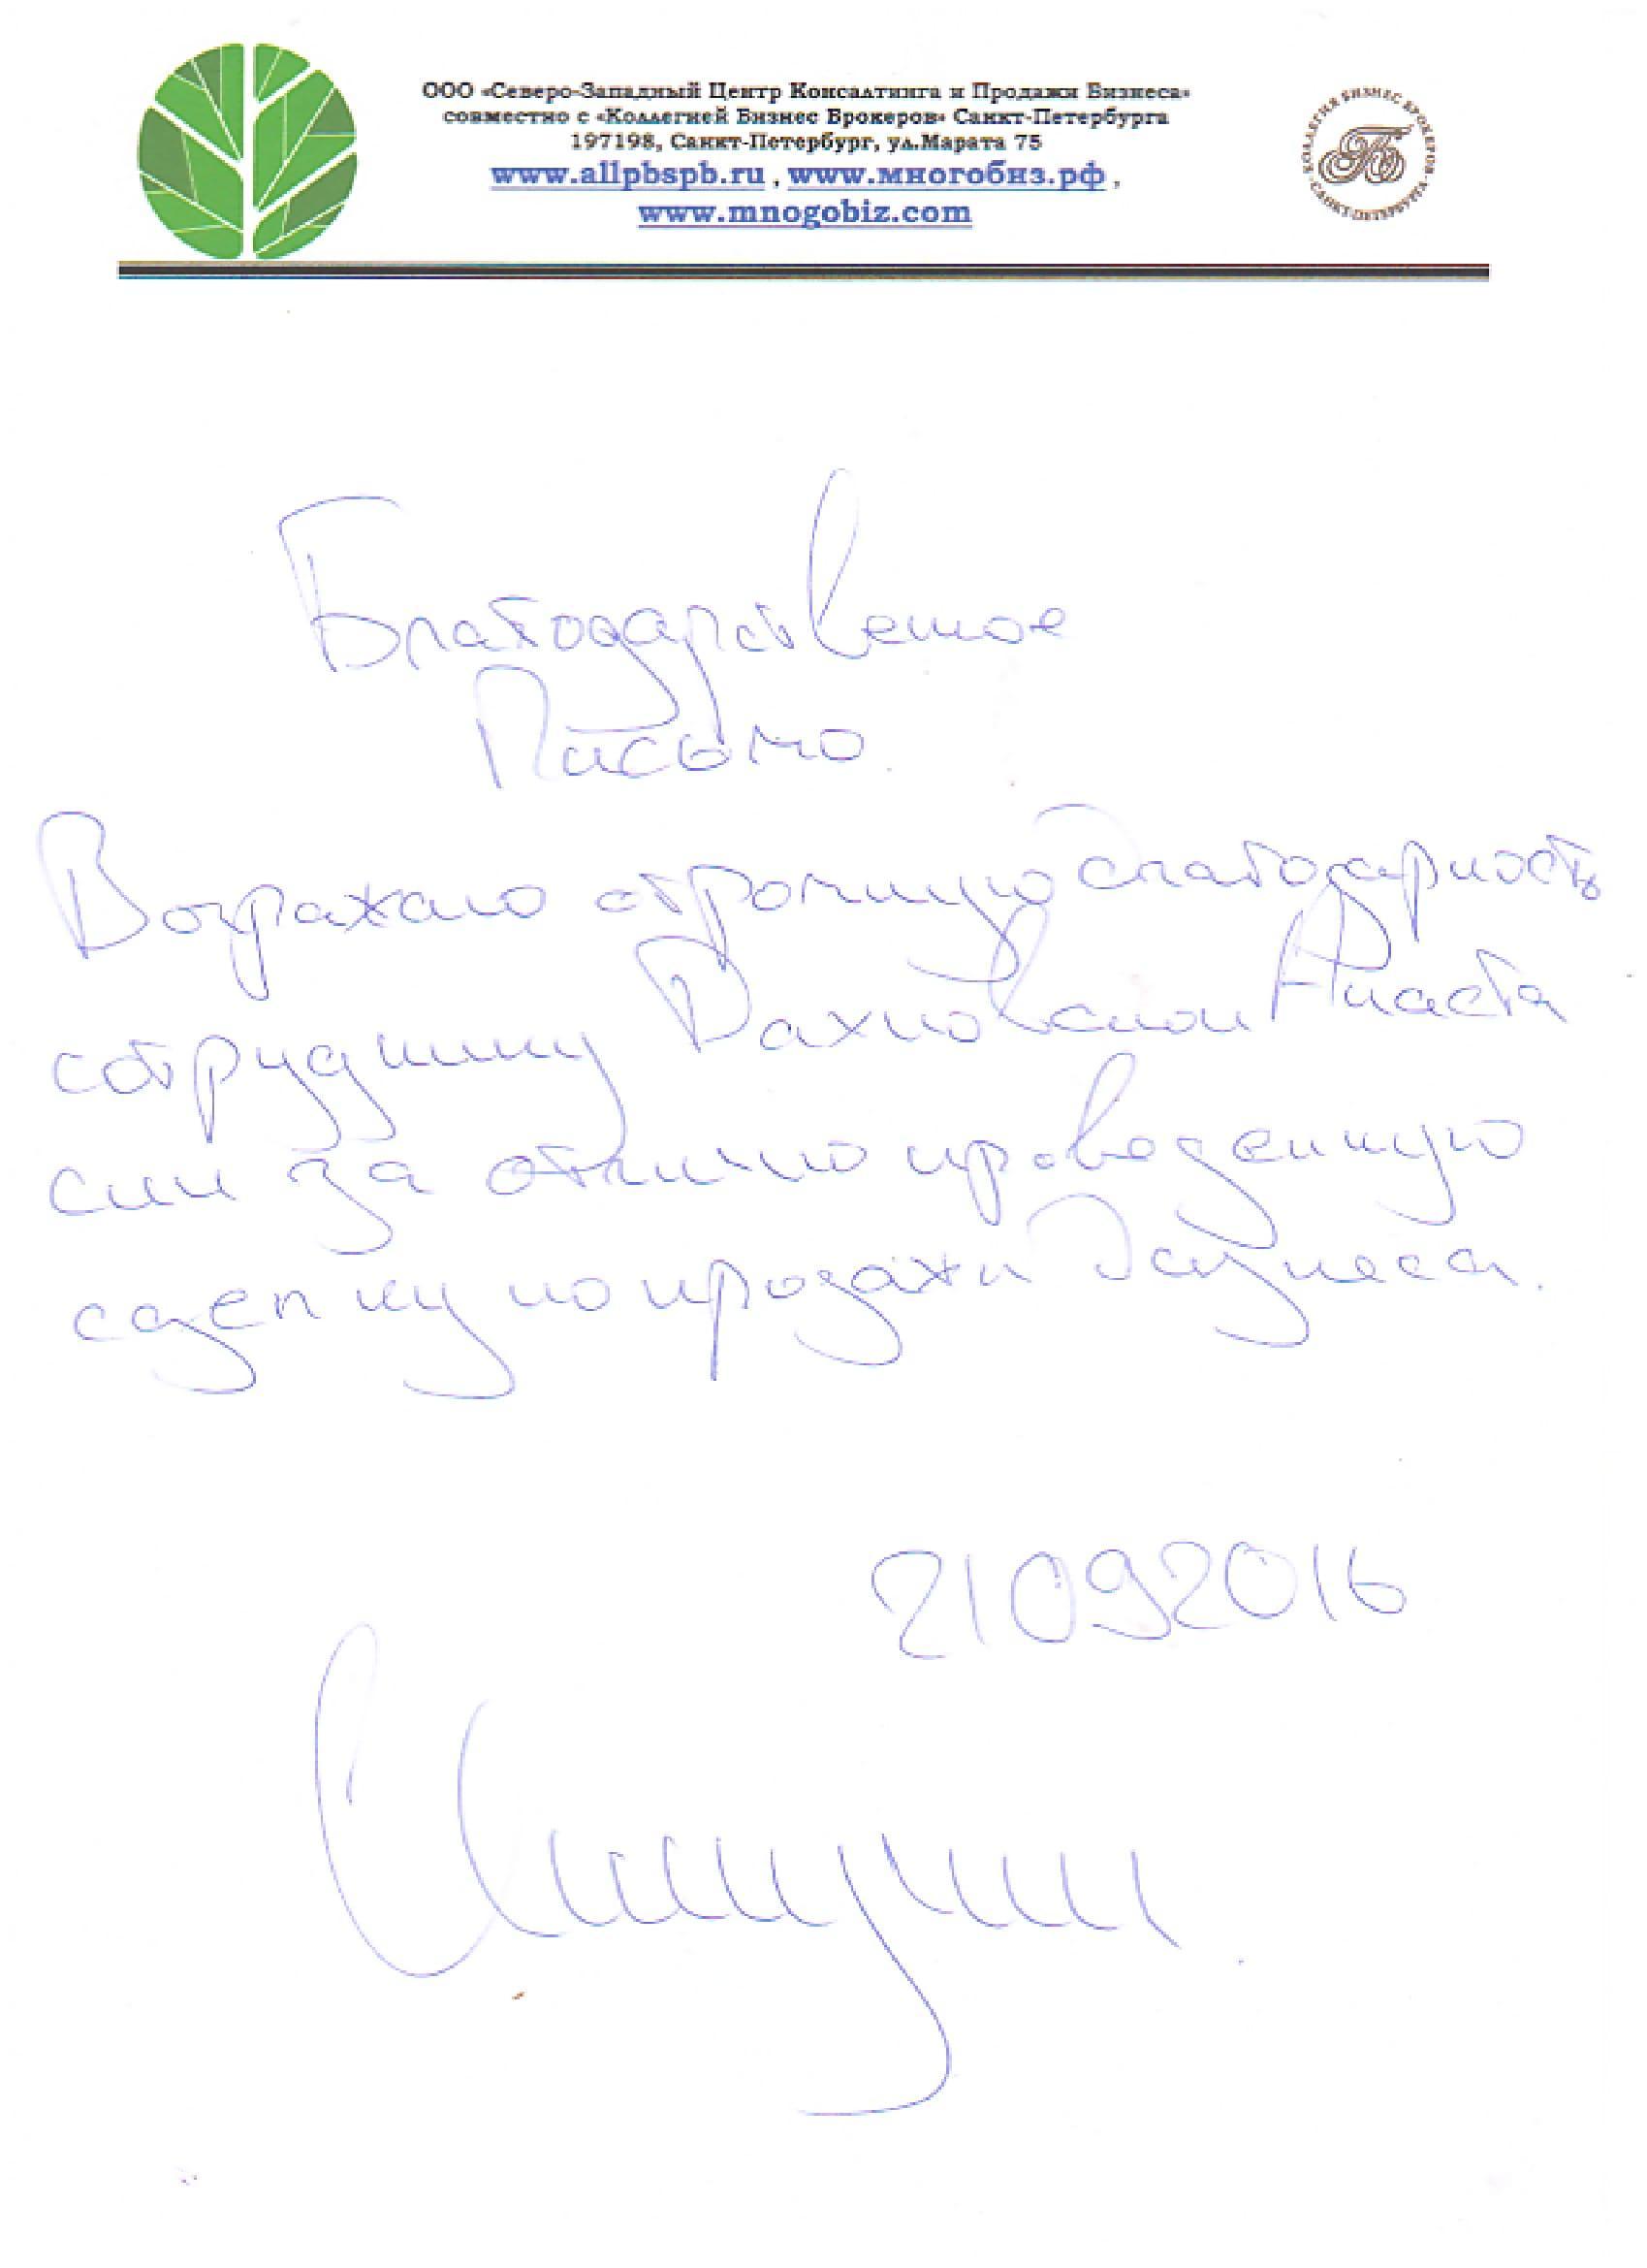 ООО «Северо-Западный Центр Консалтинга и Продажи Бизнеса»
совместно с «Коллегией Бизнес Брокеров» Санкт-Петербурга
197198, Санкт-Петербург, ул.Марата 75
www.allpbspb.ru , www.многобиз.рф ,
www.mnogobiz.com
КОЛЛЕГИЯ БИЗНЕС БРОКЕРОВ
САНКТ-ПЕТЕРБУРГА
Благодарственное
Письмо
Выражаю огромную благодарность
сотруднику Вахновской Анаста
сии за отлично проведенную
сделку по продажи бизнеса.
21092016